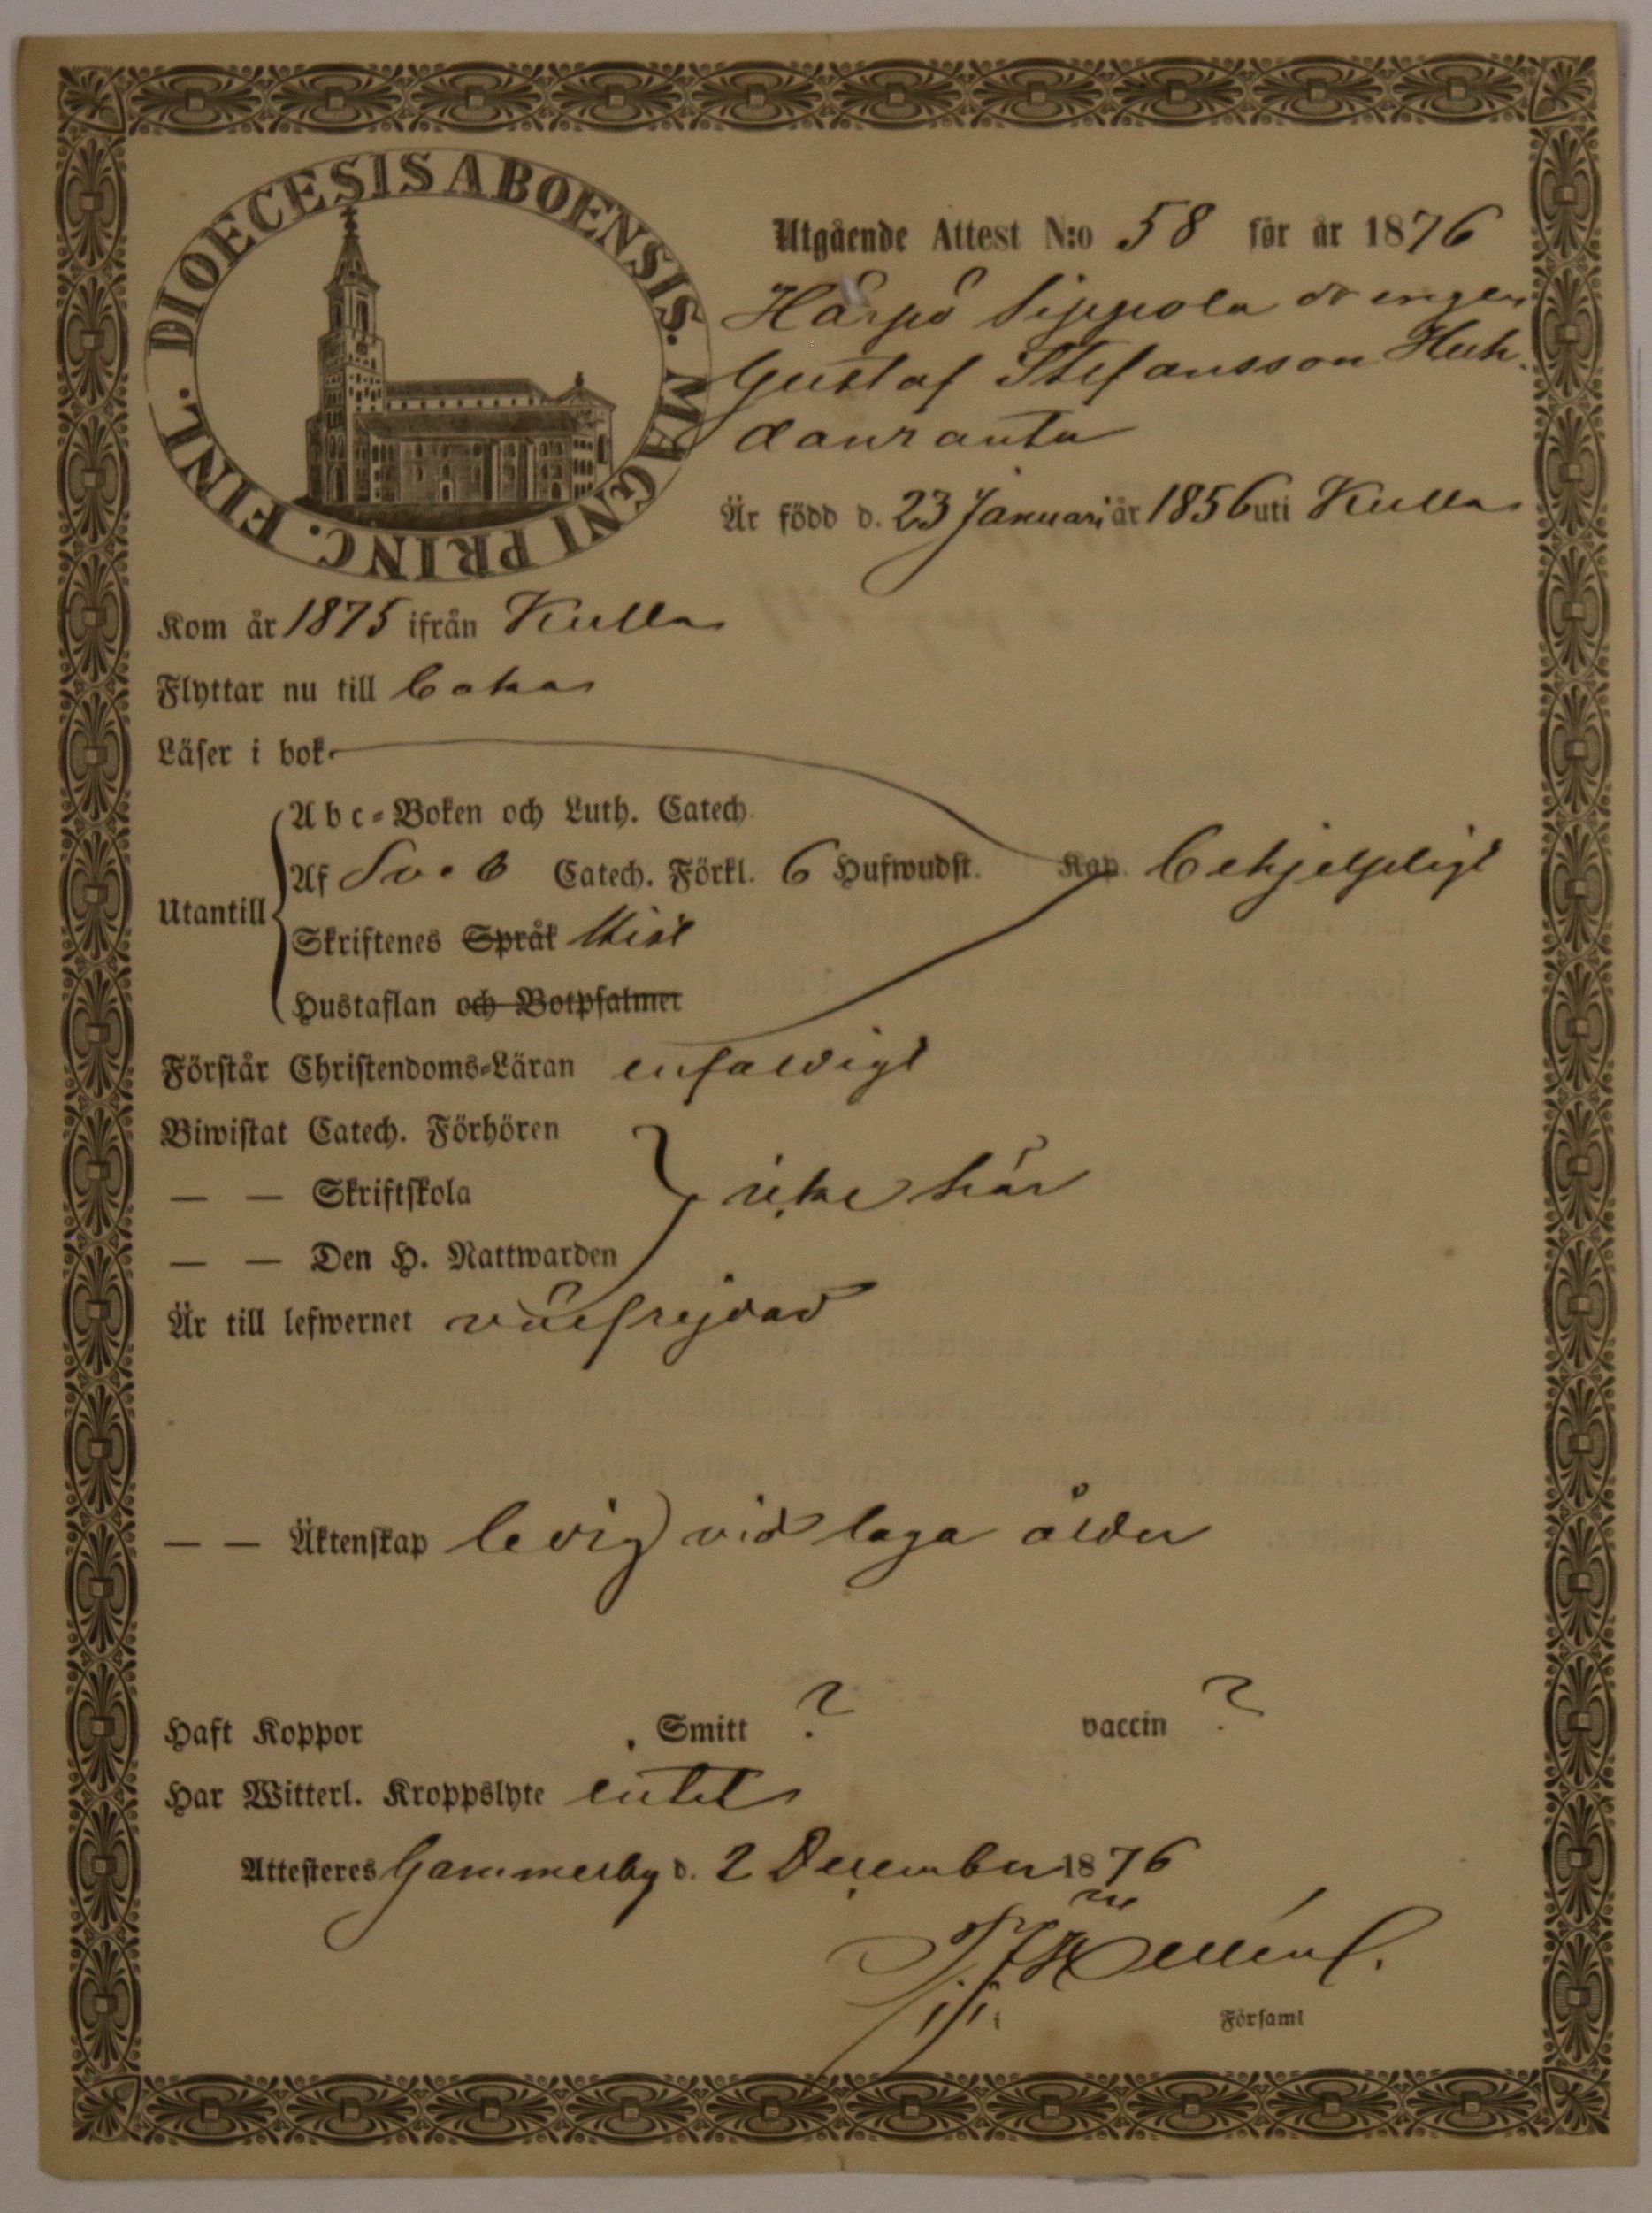 DIOECESIS ABOENSIS. MAGNI PRINC. FINL.
Utgående Attest N:o 58 för år 1876
Härpö Sippola drengen
Gustaf Stefansson Huh-
danranta
Är född d. 23 Januari år 1856 uti Kulla
Kom år 1875 ifrån Kulla
Flyttar nu till
Läser i bok
Abc-Boken och Luth. Catech.
Utantill
Af Sveb Catech. Förkl. 6 Hufwudst. Kap. behjelpligt
Skriftenes Språk
Hustaflan och Botpsalmer
Förstår Christendoms-Läran enfaldigt
Biwistat Catech. Förhören
— — Skriftskola icke här
— — Den H. Nattwarden
Är till lefwernet välfrejdad
— — Äktenskap ledig vid laga ålder
Haft Koppor , Smitt ? vaccin ?
Har Witterl. Kroppslyte intet
Attesteres Gammelby d. 2 December 1876
i Församl